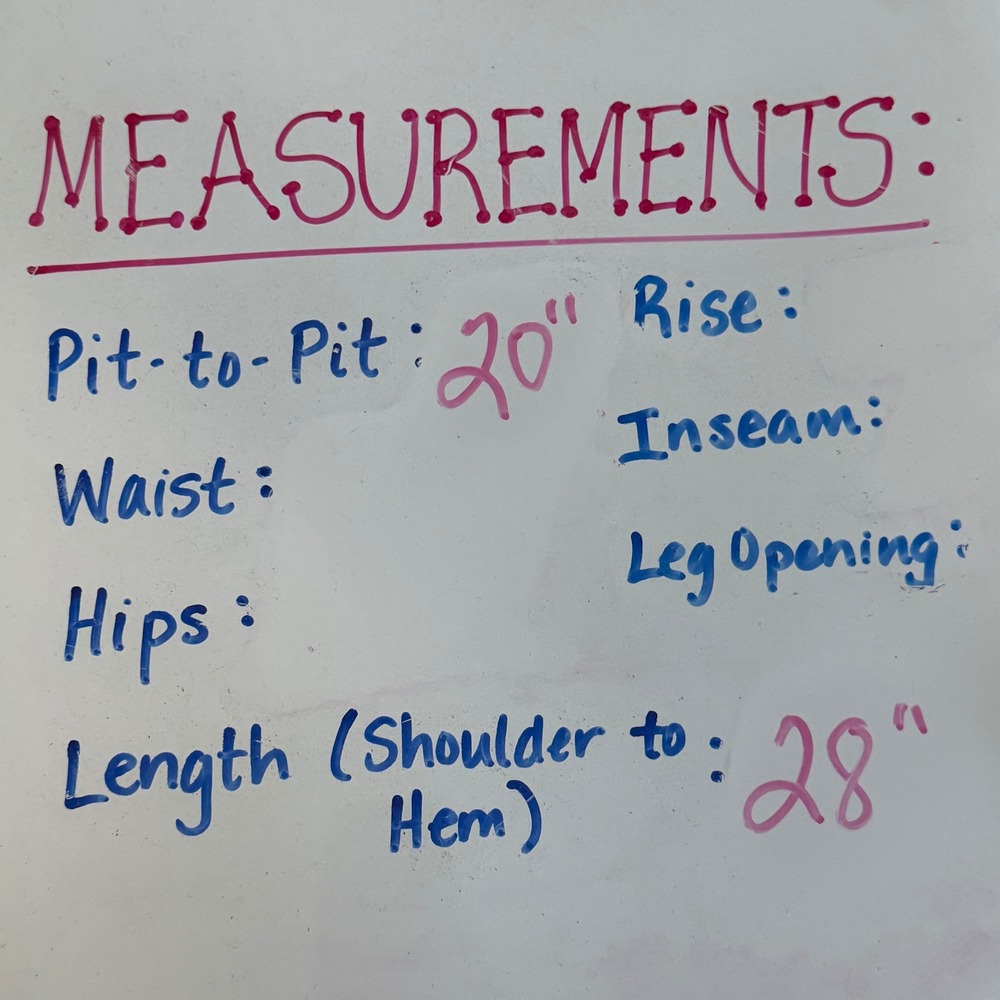 MEASUREMENTS:
Pit-to-Pit: 20"
Waist:
Hips:
Rise:
Inseam:
Leg Opening:
Length (Shoulder to : 28"
Hem)